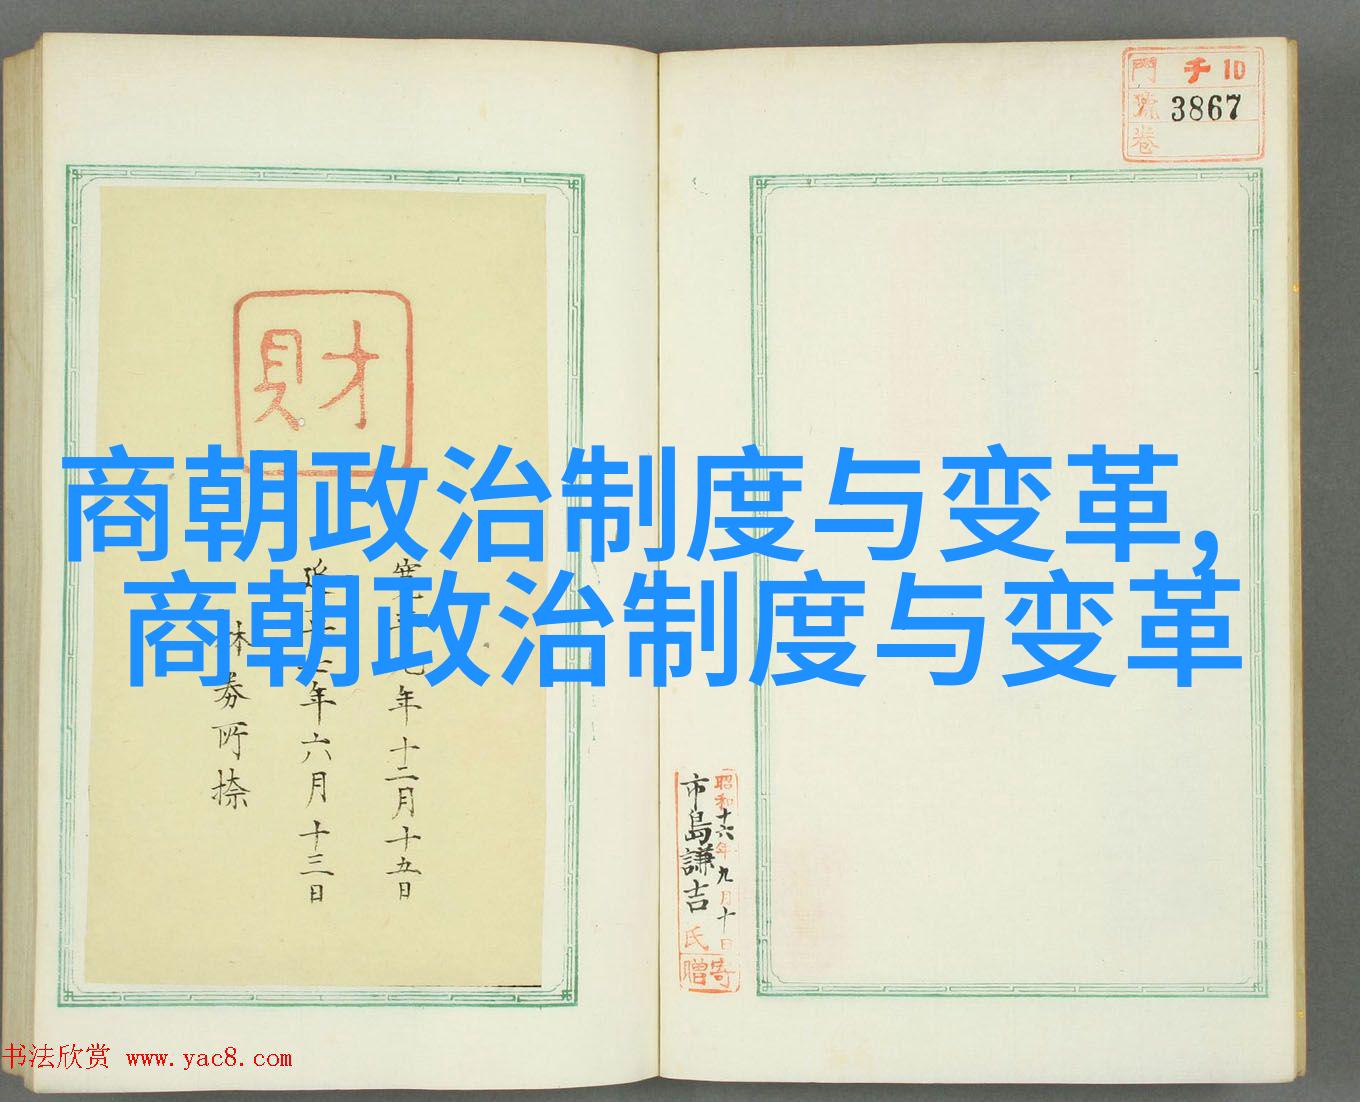 門 千 10
號 3867
卷
財
商朝政治制度与变革,
商朝政治制度与变革
年十二月十五日
年六月十三日
昭和十六年九月十日
市島謙吉氏
寄贈
书法欣赏 www.yac8.com